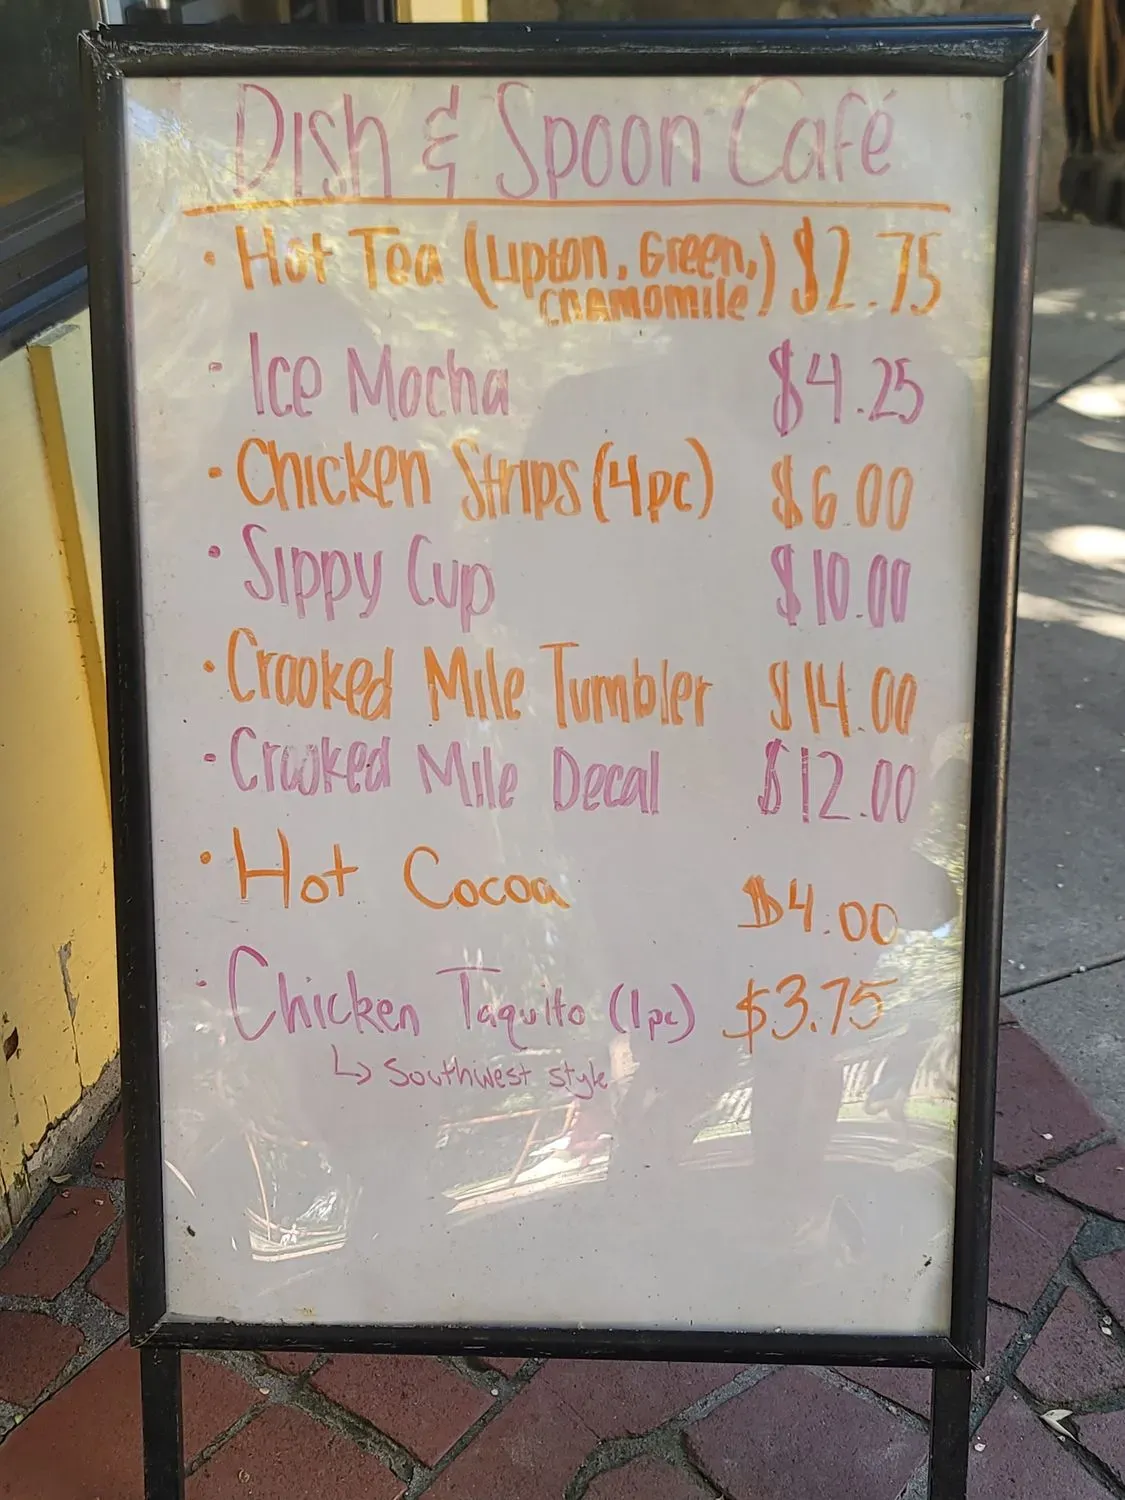 Dish & Spoon Café
• Hot Tea (Lipton, Green, Chamomile) $2.75
• Ice Mocha $4.25
• Chicken Strips (4pc) $6.00
• Sippy Cup $10.00
• Crooked Mile Tumbler $14.00
• Crooked Mile Decal $12.00
• Hot Cocoa $4.00
• Chicken Taquito (1pc) $3.75
↳ Southwest style